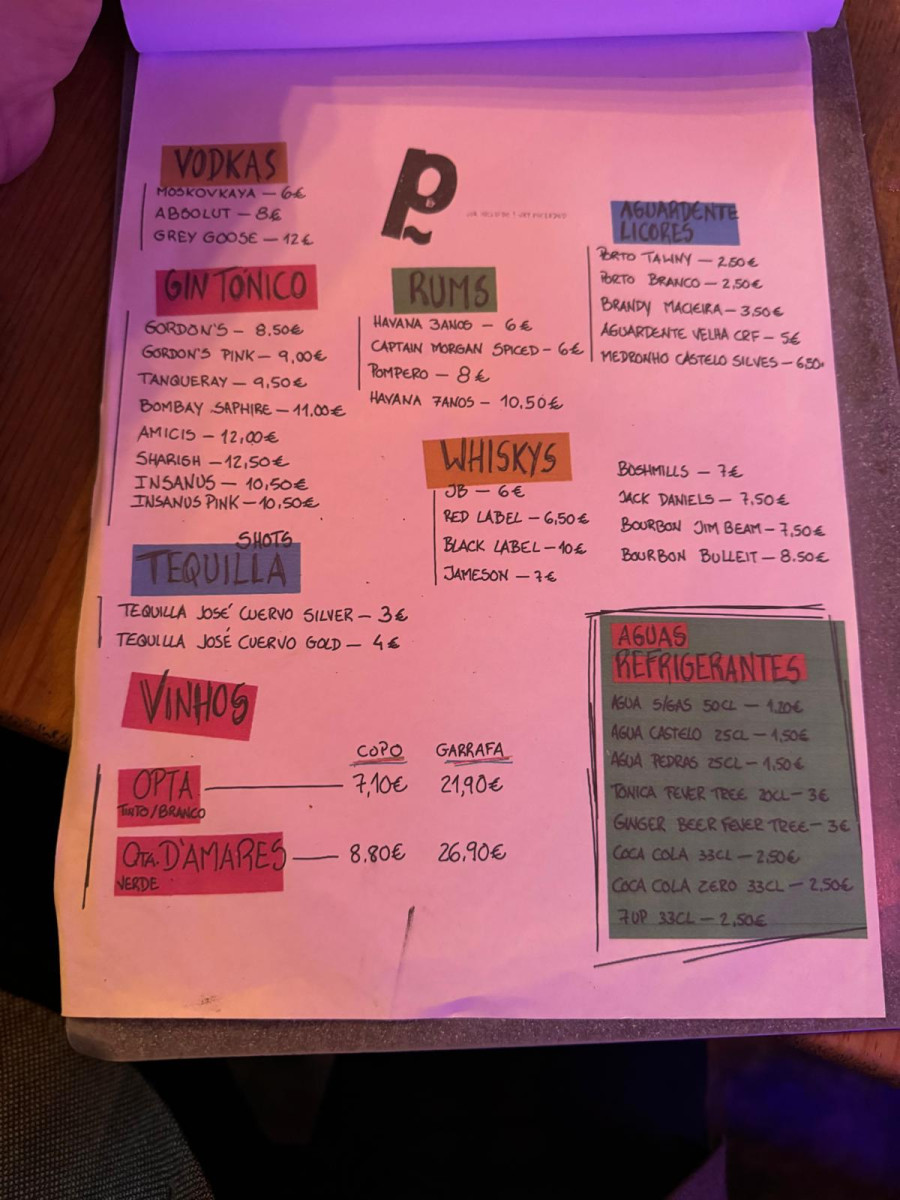 VODKAS
MOSKOVKAYA — 6€
ABSOLUT — 8€
GREY GOOSE — 12€
GIN TÓNICO
GORDON'S — 8.50€
GORDON'S PINK — 9,00€
TANQUERAY — 9,50€
BOMBAY SAPHIRE — 11.00€
AMICIS — 12,00€
SHARISH — 12,50€
INSANUS — 10,50€
INSANUS PINK — 10,50€
SHOTS
TEQUILLA
TEQUILLA JOSÉ CUERVO SILVER — 3€
TEQUILLA JOSÉ CUERVO GOLD — 4€
RUMS
HAVANA 3ANOS — 6€
CAPTAIN MORGAN SPICED — 6€
POMPERO — 8€
HAVANA 7ANOS — 10,50€
AGUARDENTE
LICORES
PORTO TAWNY — 2,50€
PORTO BRANCO — 2,50€
BRANDY MACIEIRA — 3,50€
AGUARDENTE VELHA CRF — 5€
MEDRONHO CASTELO SILVES — 6,50€
WHISKYS
JB — 6€
RED LABEL — 6,50€
BLACK LABEL — 10€
JAMESON — 7€
BOSHMILLS — 7€
JACK DANIELS — 7,50€
BOURBON JIM BEAM — 7,50€
BOURBON BULLEIT — 8.50€
VINHOS
COPO GARRAFA
OPTA — 7,10€ 21,90€
TINTO/BRANCO
QTA. D'AMARES — 8.80€ 26,90€
VERDE
AGUAS
REFRIGERANTES
AGUA S/GAS 50CL — 1.20€
AGUA CASTELO 25CL — 1,50€
AGUA PEDRAS 25CL — 1,50€
TONICA FEVER TREE 20CL — 3€
GINGER BEER FEVER TREE — 3€
COCA COLA 33CL — 2,50€
COCA COLA ZERO 33CL — 2,50€
7UP 33CL — 2,50€